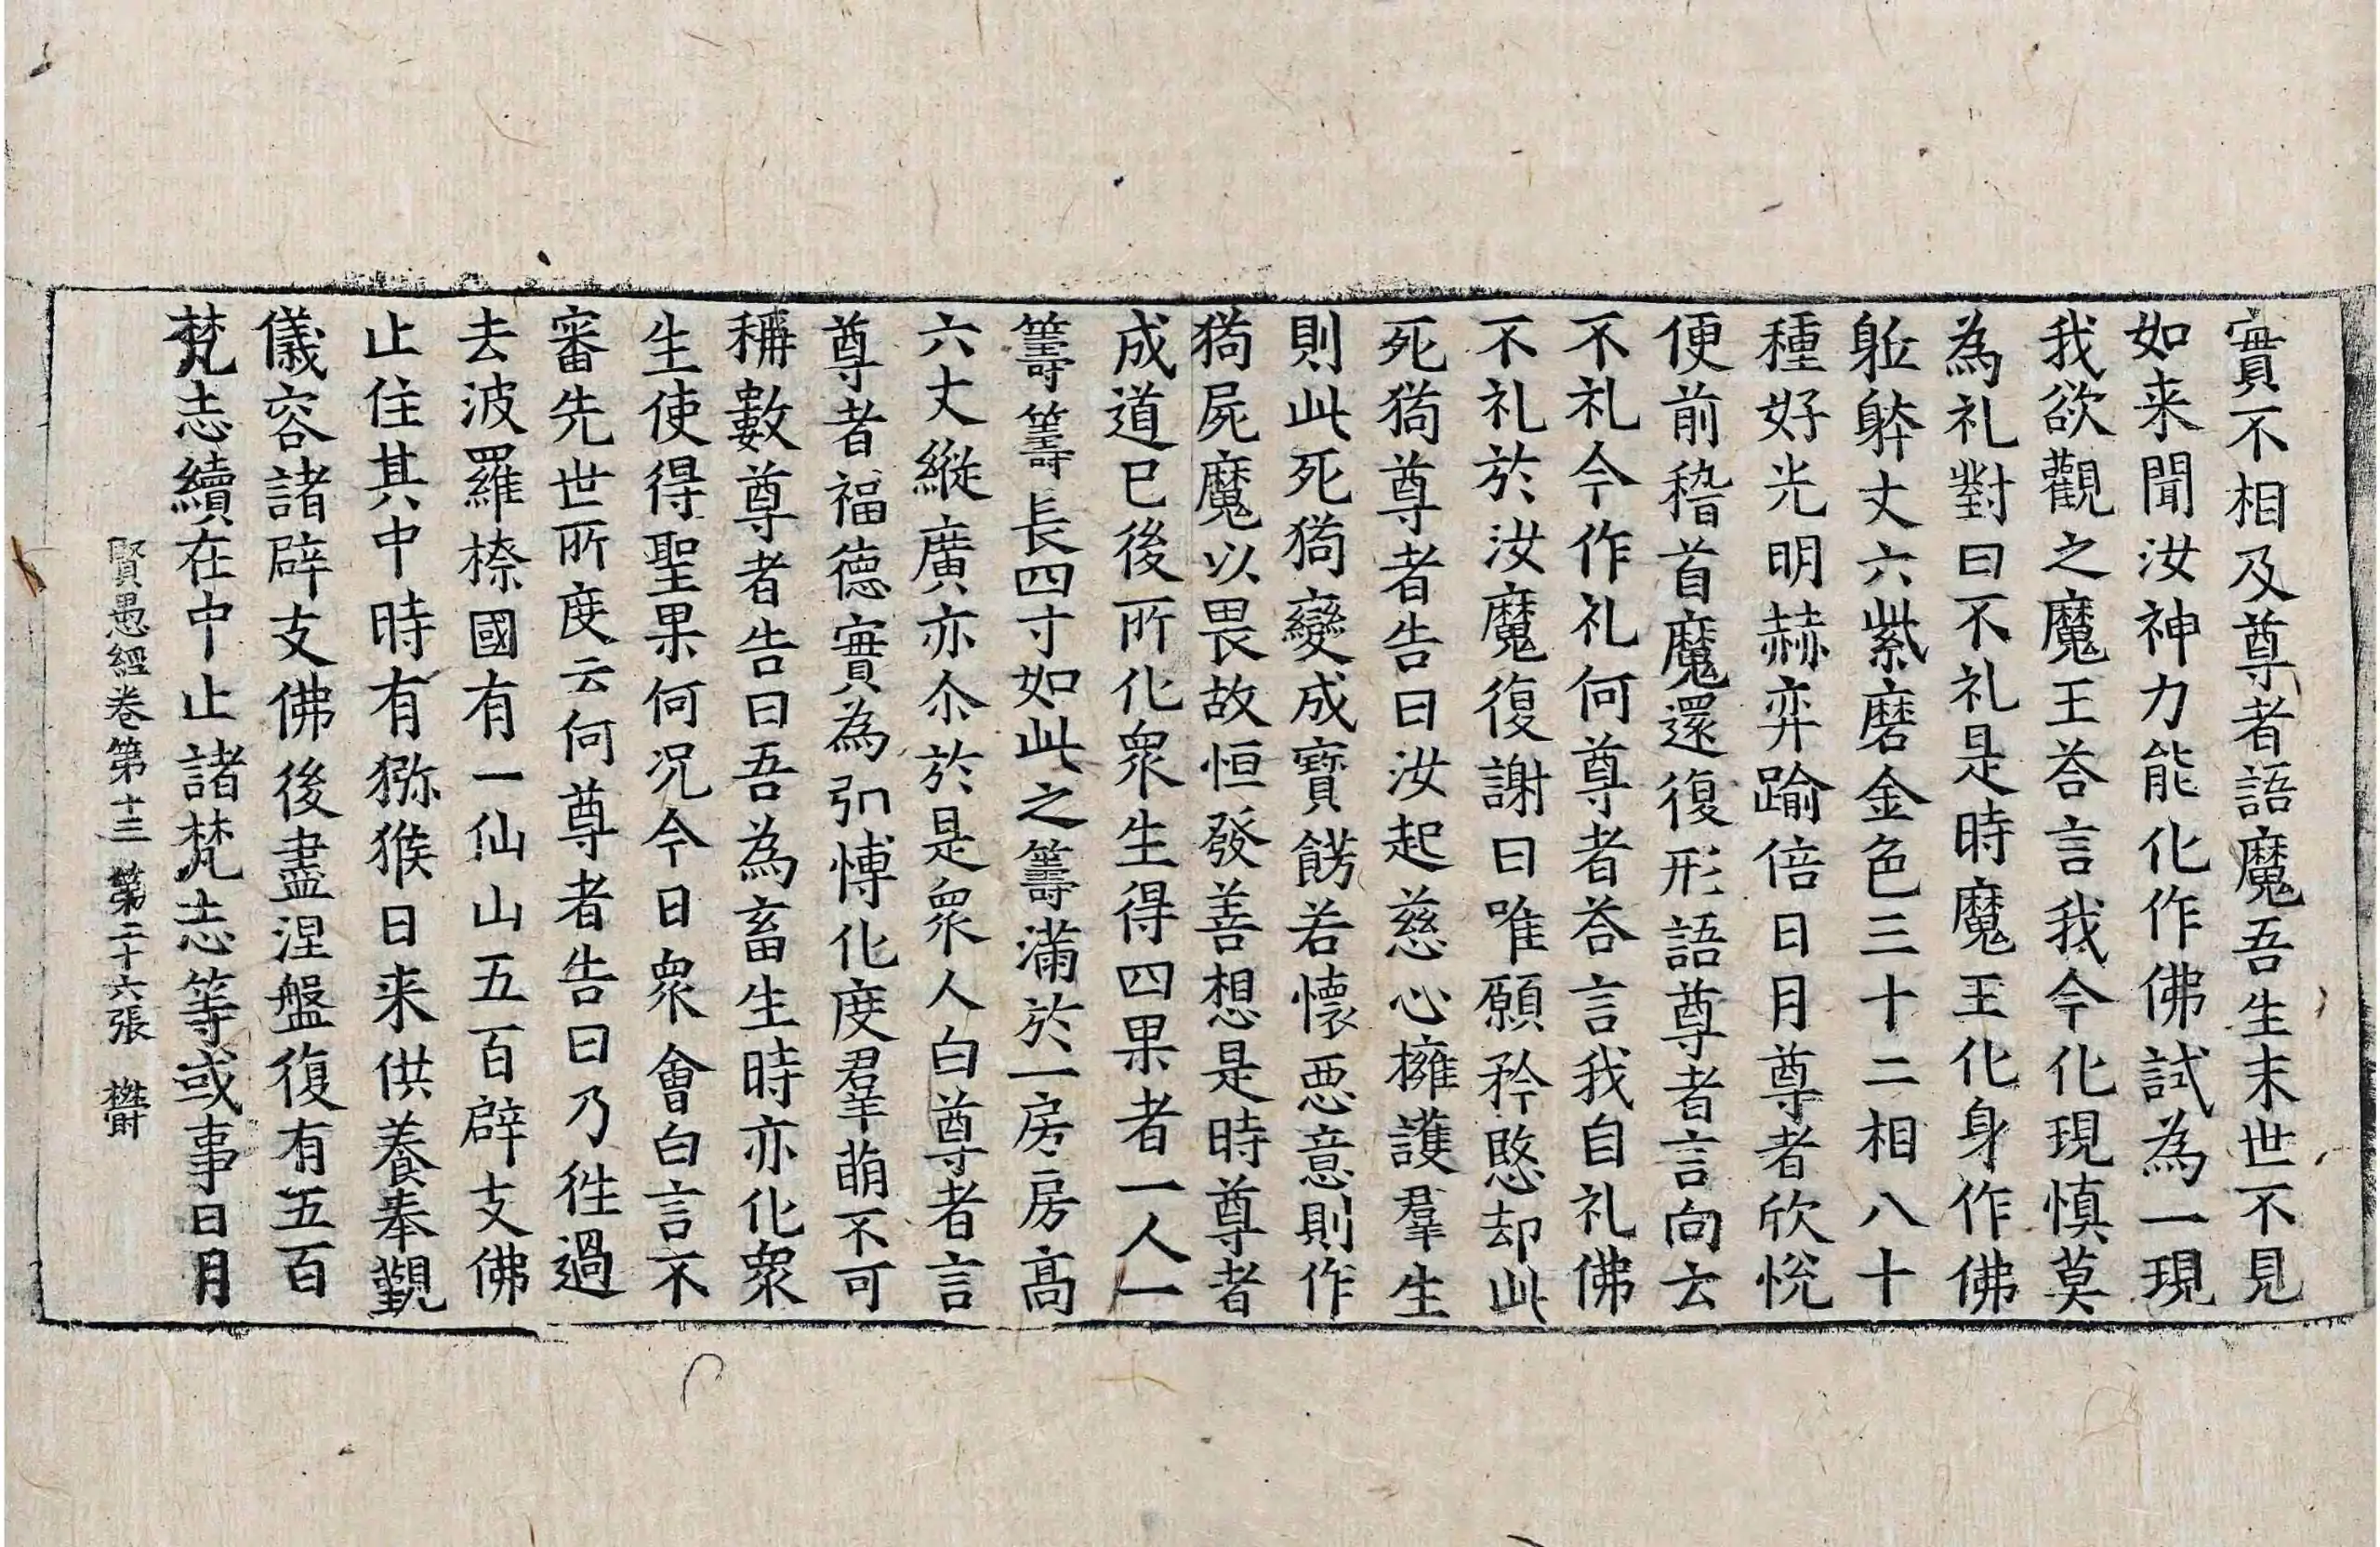 實不相及尊者語魔吾生末世不見
如来聞汝神力能化作佛試為一現
我欲觀之魔王荅言我今化現慎莫
為礼對曰不礼是時魔王化身作佛
躯躰丈六紫磨金色三十二相八十
種好光明赫弈踰倍日月尊者欣悅
便前稽首魔還復形語尊者言向云
不礼今作礼何尊者荅言我自礼佛
不礼於汝魔復謝曰唯願矜愍却此
死猗尊者告曰汝起慈心擁護羣生
則此死猗變成寶餝若懷惡意則作
猗屍魔以畏故恒發善想是時尊者
成道已後所化衆生得四果者一人一
籌籌長四寸如此之籌滿於一房房高
六丈縱廣亦尒於是衆人白尊者言
尊者福德實為弘博化度羣萌不可
稱數尊者告曰吾為畜生時亦化衆
生使得聖果何况今日衆會白言不
審先世所度云何尊者告曰乃徃過
去波羅㮈國有一仙山五百辟支佛
止住其中時有獼猴日来供養奉覲
儀容諸辟支佛後盡涅盤復有五百
梵志續在中止諸梵志等或事日月
賢愚經卷第十三 第二十六張 欝